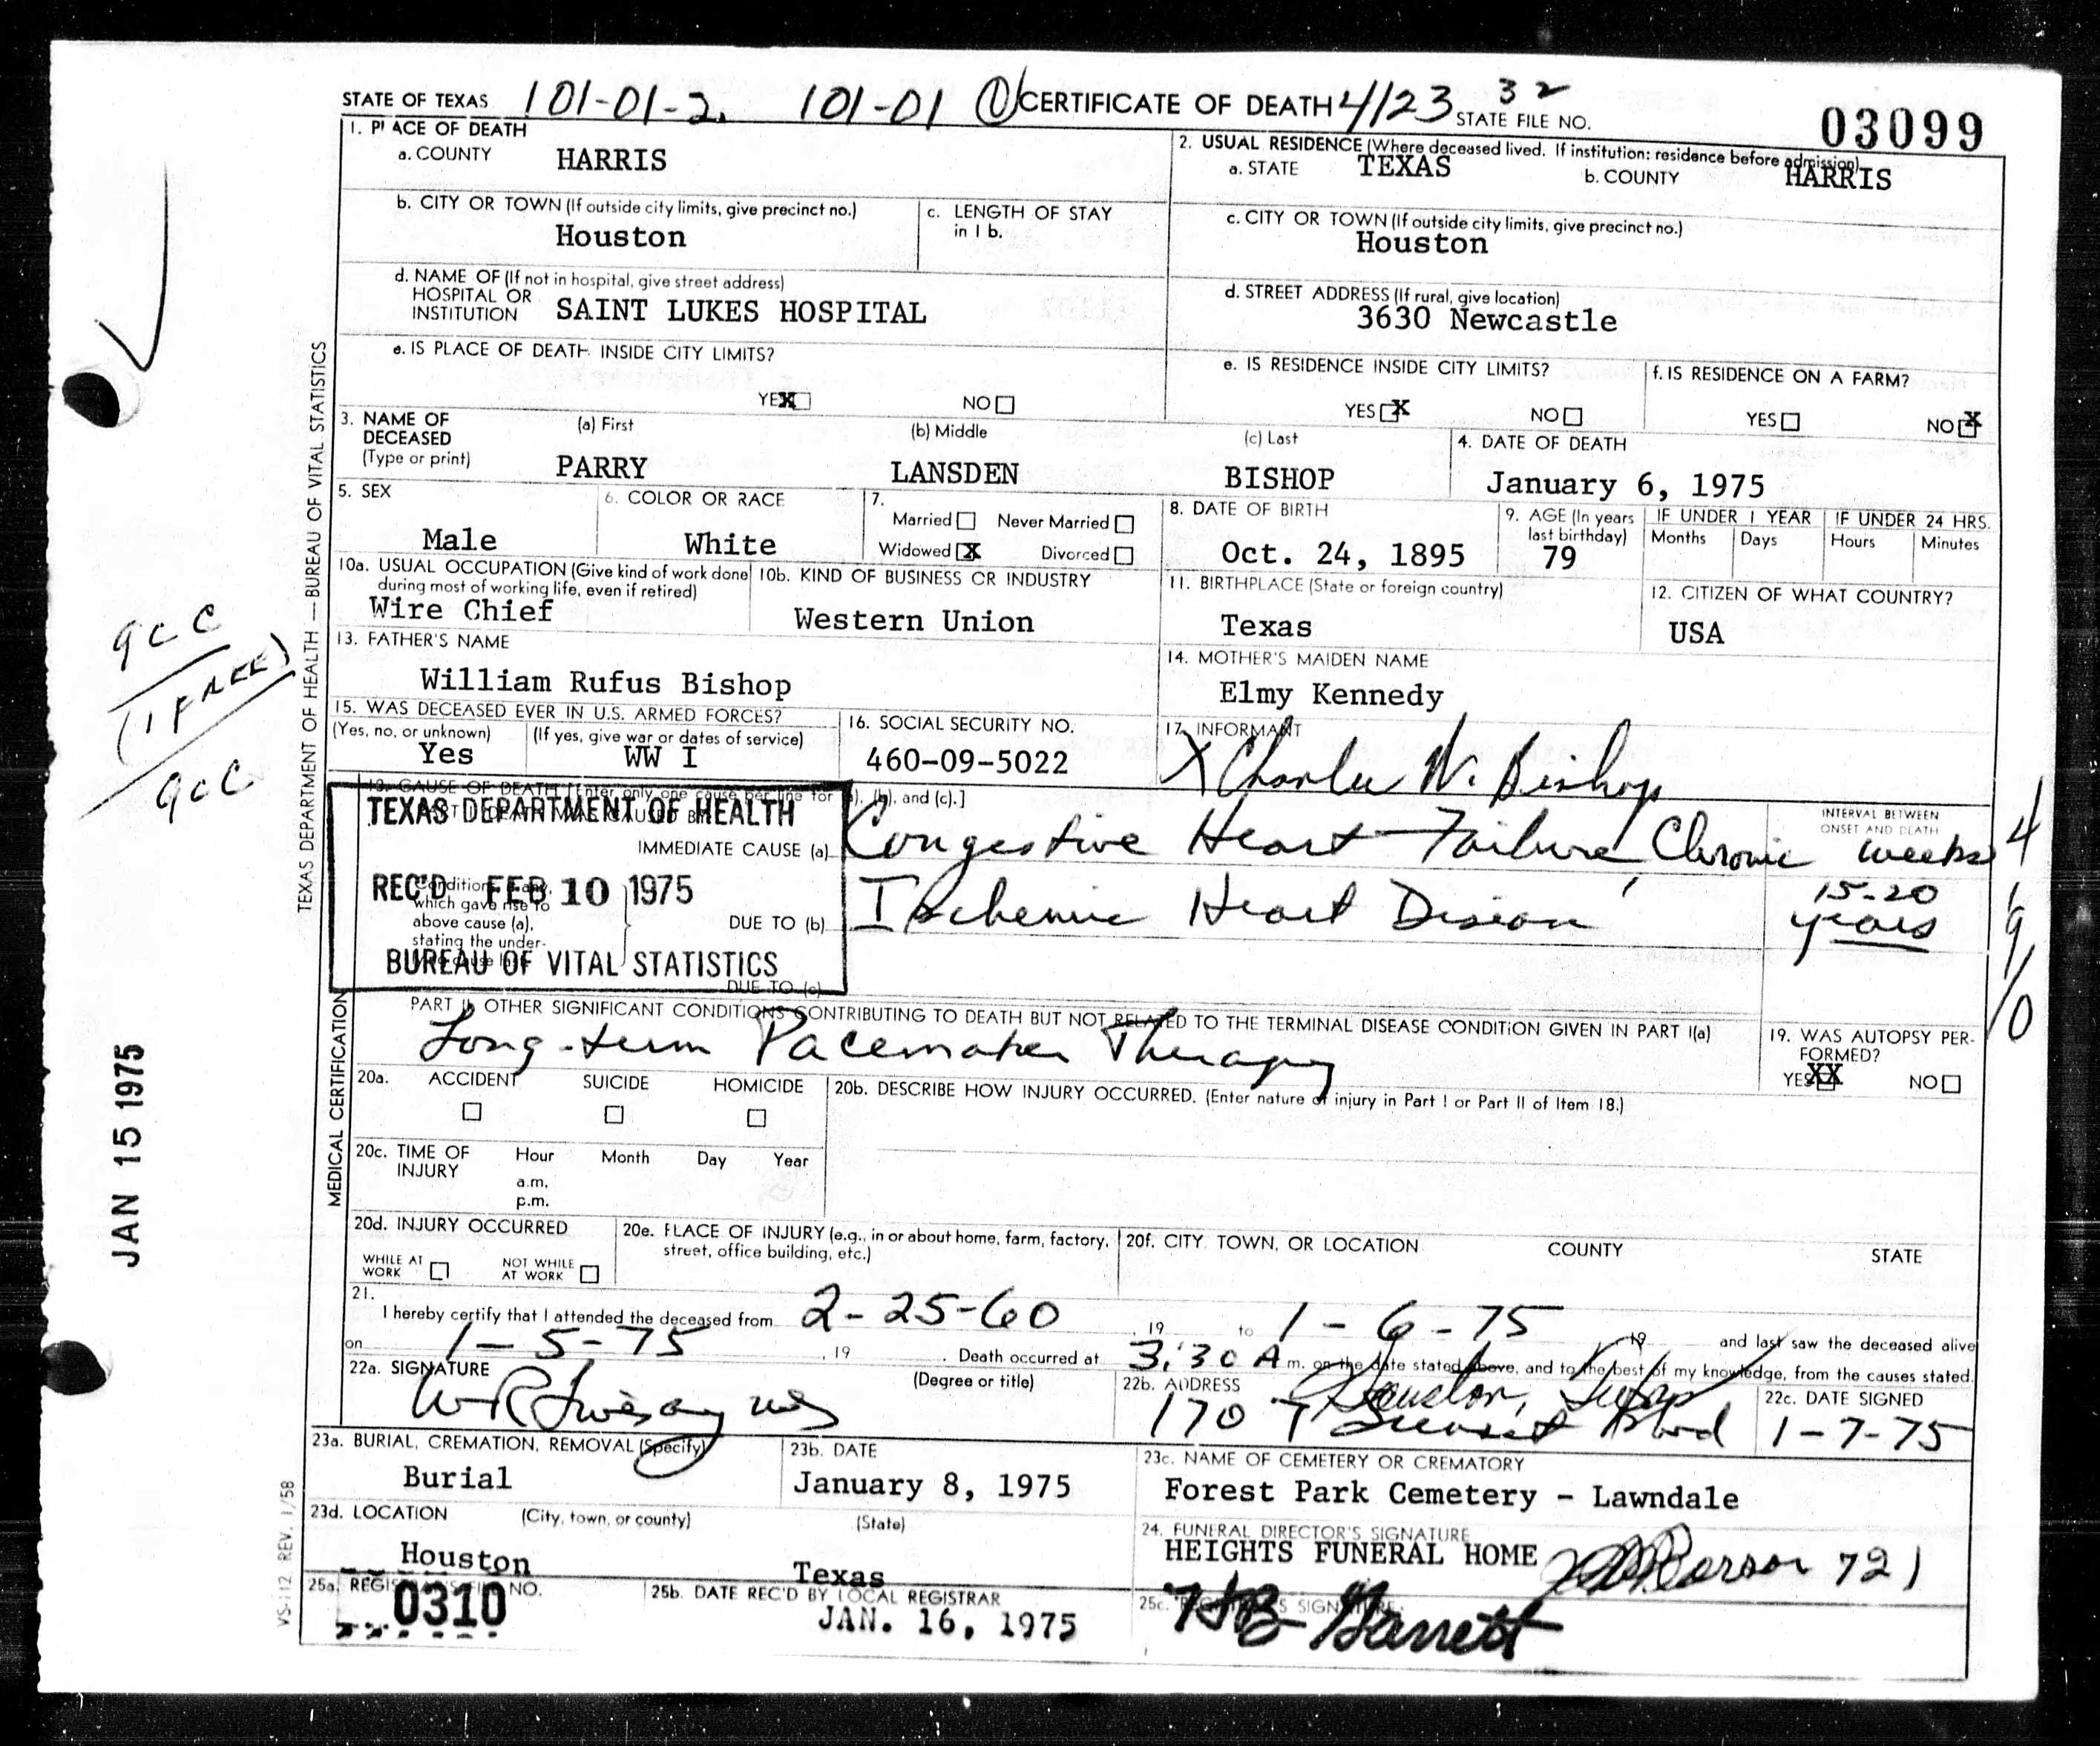 STATE OF TEXAS 101-01-2. 101-01 1 CERTIFICATE OF DEATH 4123 32 STATE FILE NO. 03099
1. PLACE OF DEATH
a. COUNTY HARRIS
2. USUAL RESIDENCE (Where deceased lived. If institution: residence before admission)
a. STATE TEXAS b. COUNTY HARRIS
b. CITY OR TOWN (If outside city limits, give precinct no.)
Houston
c. LENGTH OF STAY
in 1 b.
c. CITY OR TOWN (If outside city limits, give precinct no.)
Houston
d. NAME OF (If not in hospital, give street address)
HOSPITAL OR
INSTITUTION SAINT LUKES HOSPITAL
d. STREET ADDRESS (If rural, give location)
3630 Newcastle
e. IS PLACE OF DEATH INSIDE CITY LIMITS?
YES X NO
e. IS RESIDENCE INSIDE CITY LIMITS?
YES X NO
f. IS RESIDENCE ON A FARM?
YES NO X
3. NAME OF
DECEASED
(Type or print)
(a) First (b) Middle (c) Last
PARRY LANSDEN BISHOP
4. DATE OF DEATH
January 6, 1975
5. SEX
Male
6. COLOR OR RACE
White
7.
Married Never Married
Widowed X Divorced
8. DATE OF BIRTH
Oct. 24, 1895
9. AGE (In years
last birthday)
79
IF UNDER 1 YEAR
Months Days
IF UNDER 24 HRS.
Hours Minutes
10a. USUAL OCCUPATION (Give kind of work done
during most of working life, even if retired)
Wire Chief
10b. KIND OF BUSINESS OR INDUSTRY
Western Union
11. BIRTHPLACE (State or foreign country)
Texas
12. CITIZEN OF WHAT COUNTRY?
USA
13. FATHER'S NAME
William Rufus Bishop
14. MOTHER'S MAIDEN NAME
Elmy Kennedy
15. WAS DECEASED EVER IN U.S. ARMED FORCES?
(Yes, no, or unknown) (If yes, give war or dates of service)
Yes WW I
16. SOCIAL SECURITY NO.
460-09-5022
17. INFORMANT
X Charles W. Bishop
18. CAUSE OF DEATH [Enter only one cause per line for (a), (b), and (c).]
TEXAS DEPARTMENT OF HEALTH
REC'D FEB 10 1975
BUREAU OF VITAL STATISTICS
IMMEDIATE CAUSE (a) Congestive Heart Failure, Chronic
INTERVAL BETWEEN
ONSET AND DEATH
weeks
which gave rise to
above cause (a),
stating the under-
DUE TO (b) Ischemic Heart Disease
15-20
years
DUE TO (c)
4
9
10
PART II. OTHER SIGNIFICANT CONDITIONS CONTRIBUTING TO DEATH BUT NOT RELATED TO THE TERMINAL DISEASE CONDITION GIVEN IN PART I(a)
Long-term Pacemaker Therapy
19. WAS AUTOPSY PER-
FORMED?
YES XX NO
20a. ACCIDENT SUICIDE HOMICIDE
20b. DESCRIBE HOW INJURY OCCURRED. (Enter nature of injury in Part I or Part II of Item 18.)
20c. TIME OF
INJURY
Hour Month Day Year
a.m.
p.m.
20d. INJURY OCCURRED
WHILE AT
WORK
NOT WHILE
AT WORK
20e. PLACE OF INJURY (e.g., in or about home, farm, factory,
street, office building, etc.)
20f. CITY, TOWN, OR LOCATION COUNTY STATE
21.
I hereby certify that I attended the deceased from 2-25-60, 19 to 1-6-75 19 and last saw the deceased alive
on 1-5-75, 19 . Death occurred at 3:30 A m. on the date stated above, and to the best of my knowledge, from the causes stated.
22a. SIGNATURE (Degree or title)
22b. ADDRESS
Houston, Texas
1707 Sunset Blvd
22c. DATE SIGNED
1-7-75
23a. BURIAL, CREMATION, REMOVAL (Specify)
Burial
23b. DATE
January 8, 1975
23c. NAME OF CEMETERY OR CREMATORY
Forest Park Cemetery - Lawndale
23d. LOCATION (City, town, or county) (State)
Houston Texas
24. FUNERAL DIRECTOR'S SIGNATURE
HEIGHTS FUNERAL HOME Pearson 721
25a. REGISTRAR'S FILE NO.
0310
25b. DATE REC'D BY LOCAL REGISTRAR
JAN. 16, 1975
25c. REGISTRAR'S SIGNATURE
HB Garrett
TEXAS DEPARTMENT OF HEALTH — BUREAU OF VITAL STATISTICS
MEDICAL CERTIFICATION
VS-112 REV. 1/58
9cc
(1 FREE)
9cc
JAN 15 1975